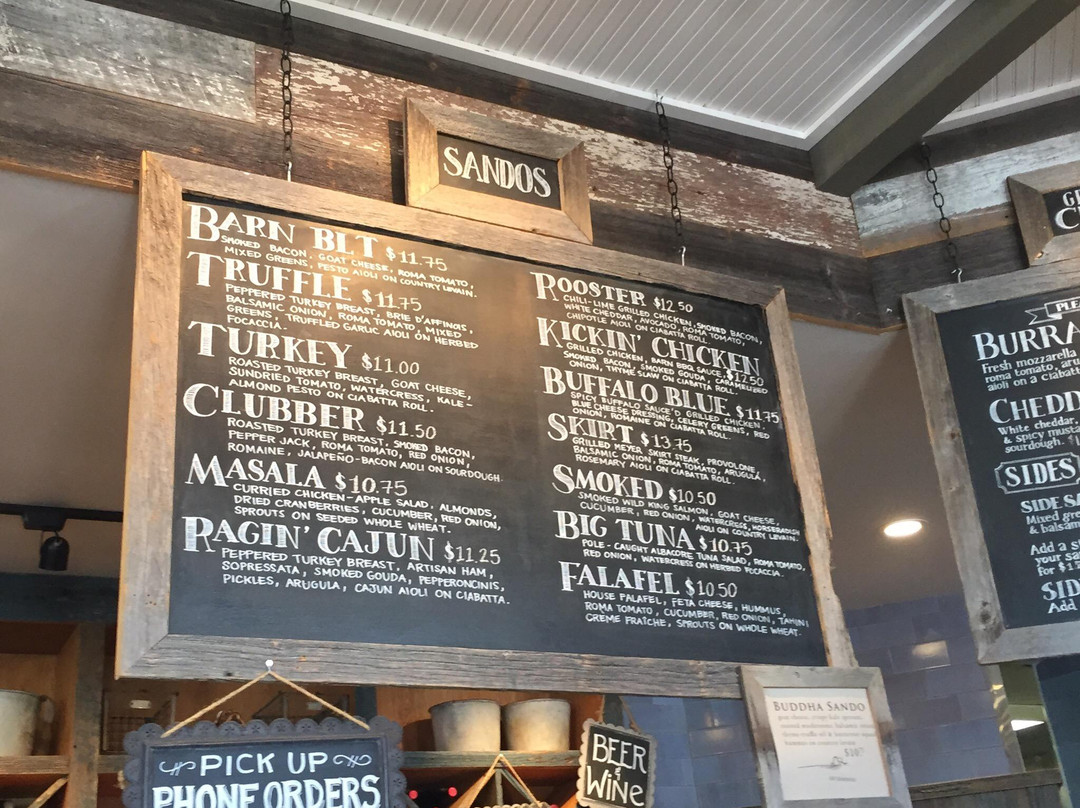 SANDOS
BARN BLT $11.75
SMOKED BACON, GOAT CHEESE, ROMA TOMATO,
MIXED GREENS, PESTO AIOLI ON COUNTRY LEVAIN.
TRUFFLE $11.75
PEPPERED TURKEY BREAST, BRIE D'AFFINOIS,
BALSAMIC ONION, ROMA TOMATO, MIXED
GREENS, TRUFFLED GARLIC AIOLI ON HERBED
FOCACCIA.
TURKEY $11.00
ROASTED TURKEY BREAST, GOAT CHEESE,
SUNDRIED TOMATO, WATERCRESS, KALE-
ALMOND PESTO ON CIABATTA ROLL.
CLUBBER $11.50
ROASTED TURKEY BREAST, SMOKED BACON,
PEPPER JACK, ROMA TOMATO, RED ONION,
ROMAINE, JALAPEÑO-BACON AIOLI ON SOURDOUGH.
MASALA $10.75
CURRIED CHICKEN-APPLE SALAD, ALMONDS,
DRIED CRANBERRIES, CUCUMBER, RED ONION,
SPROUTS ON SEEDED WHOLE WHEAT.
RAGIN' CAJUN $11.25
PEPPERED TURKEY BREAST, ARTISAN HAM,
SOPRESSATA, SMOKED GOUDA, PEPPERONCINIS,
PICKLES, ARUGULA, CAJUN AIOLI ON CIABATTA.
ROOSTER $12.50
CHILI-LIME GRILLED CHICKEN, SMOKED BACON,
WHITE CHEDDAR, AVOCADO, ROMA TOMATO,
CHIPOTLE AIOLI ON CIABATTA ROLL.
KICKIN' CHICKEN $12.50
GRILLED CHICKEN, BARN BBQ SAUCE,
SMOKED BACON, SMOKED GOUDA, CARAMELIZED
ONION, THYME SLAW ON CIABATTA ROLL.
BUFFALO BLUE $11.75
SPICY BUFFALO SAUCE'D GRILLED CHICKEN,
BLUE CHEESE DRESSING, CELERY GREENS, RED
ONION, ROMAINE ON CIABATTA ROLL.
SKIRT $13.75
GRILLED MEYER SKIRT STEAK, PROVOLONE,
BALSAMIC ONION, ROMA TOMATO, ARUGULA,
ROSEMARY AIOLI ON CIABATTA ROLL.
SMOKED $10.50
SMOKED WILD KING SALMON, GOAT CHEESE,
CUCUMBER, RED ONION, WATERCRESS, HORSERADISH
AIOLI ON COUNTRY LEVAIN.
BIG TUNA $10.75
POLE-CAUGHT ALBACORE TUNA SALAD, ROMA TOMATO,
RED ONION, WATERCRESS ON HERBED FOCACCIA.
FALAFEL $10.50
HOUSE FALAFEL, FETA CHEESE, HUMMUS,
ROMA TOMATO, CUCUMBER, RED ONION, TAHINI
CREME FRAÎCHE, SPROUTS ON WHOLE WHEAT.
PICK UP
PHONE ORDERS
BEER
& WINE
BUDDHA SANDO
hummus on country levain
BURRA
Fresh mozzarella
roma tomato, aru
aioli on a ciabatt
CHEDD
White cheddar,
& spicy must
sourdough.
SIDES
SIDE SA
Mixed gre
& balsam
Add a s
your sa
for $1.5
SID
Add